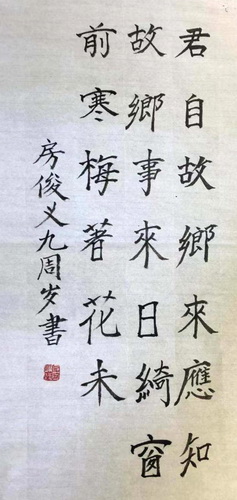 君自故鄉來應知
故鄉事來日綺窗
前寒梅著花未
房俊义九周岁書